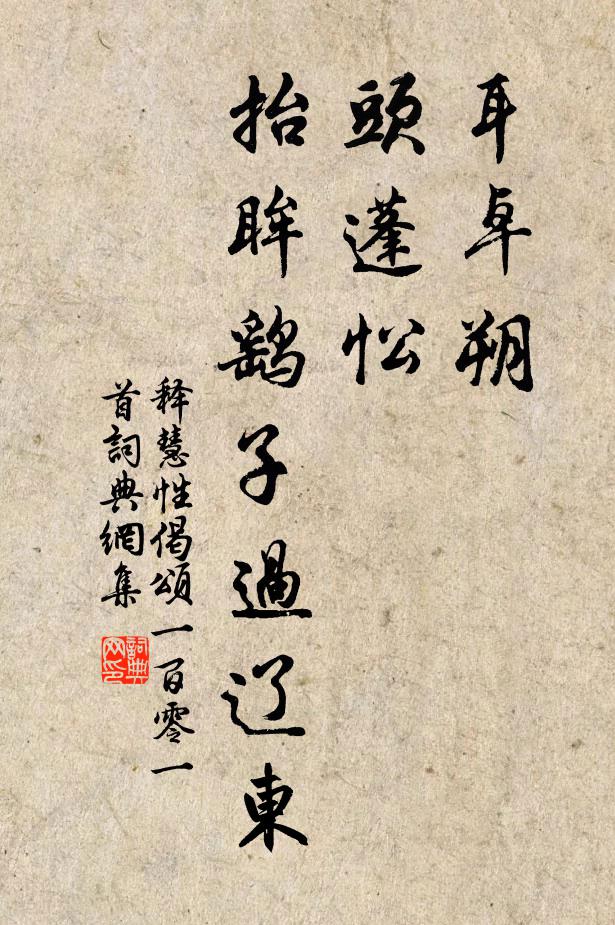 耳卓朔
頭蓬松
抬眸鷂子過辽東
释慧性偈頌一百零一
首詞典網集
詞典
网印